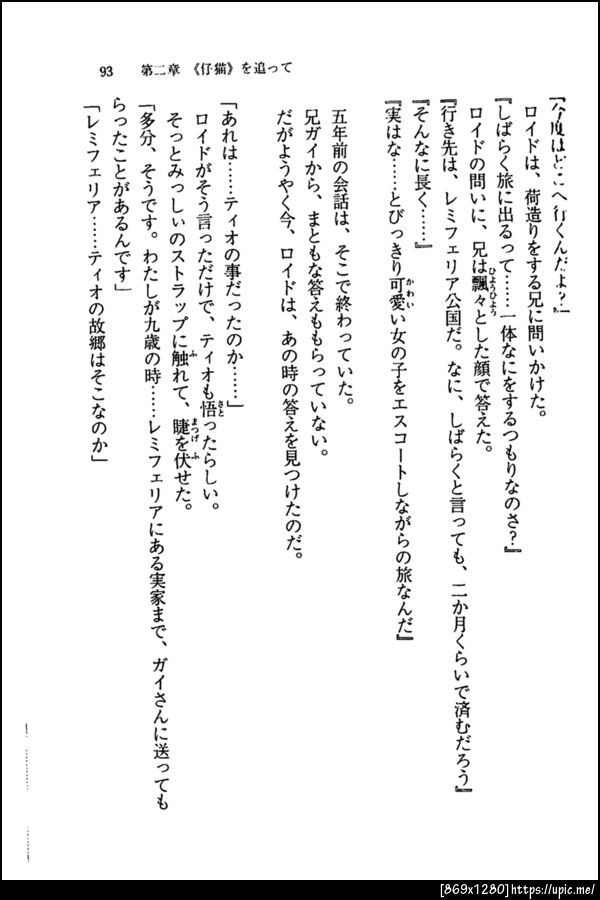 93 第二章 《仔猫》を追って
『今度はどこへ行くんだよ？』
ロイドは、荷造りをする兄に問いかけた。
『しばらく旅に出るって……一体なにをするつもりなのさ？』
ロイドの問いに、兄は飄々とした顔で答えた。
『行き先は、レミフェリア公国だ。なに、しばらくと言っても、二か月くらいで済むだろう』
『そんなに長く……』
『実はな……とびっきり可愛い女の子をエスコートしながらの旅なんだ』
五年前の会話は、そこで終わっていた。
兄ガイから、まともな答えももらっていない。
だがようやく今、ロイドは、あの時の答えを見つけたのだ。
「あれは……ティオの事だったのか……」
ロイドがそう言っただけで、ティオも悟ったらしい。
そっとみっしぃのストラップに触れて、睫を伏せた。
「多分、そうです。わたしが九歳の時……レミフェリアにある実家まで、ガイさんに送っても
らったことがあるんです」
「レミフェリア……ティオの故郷はそこなのか」
[869x1280]https://upic.me/